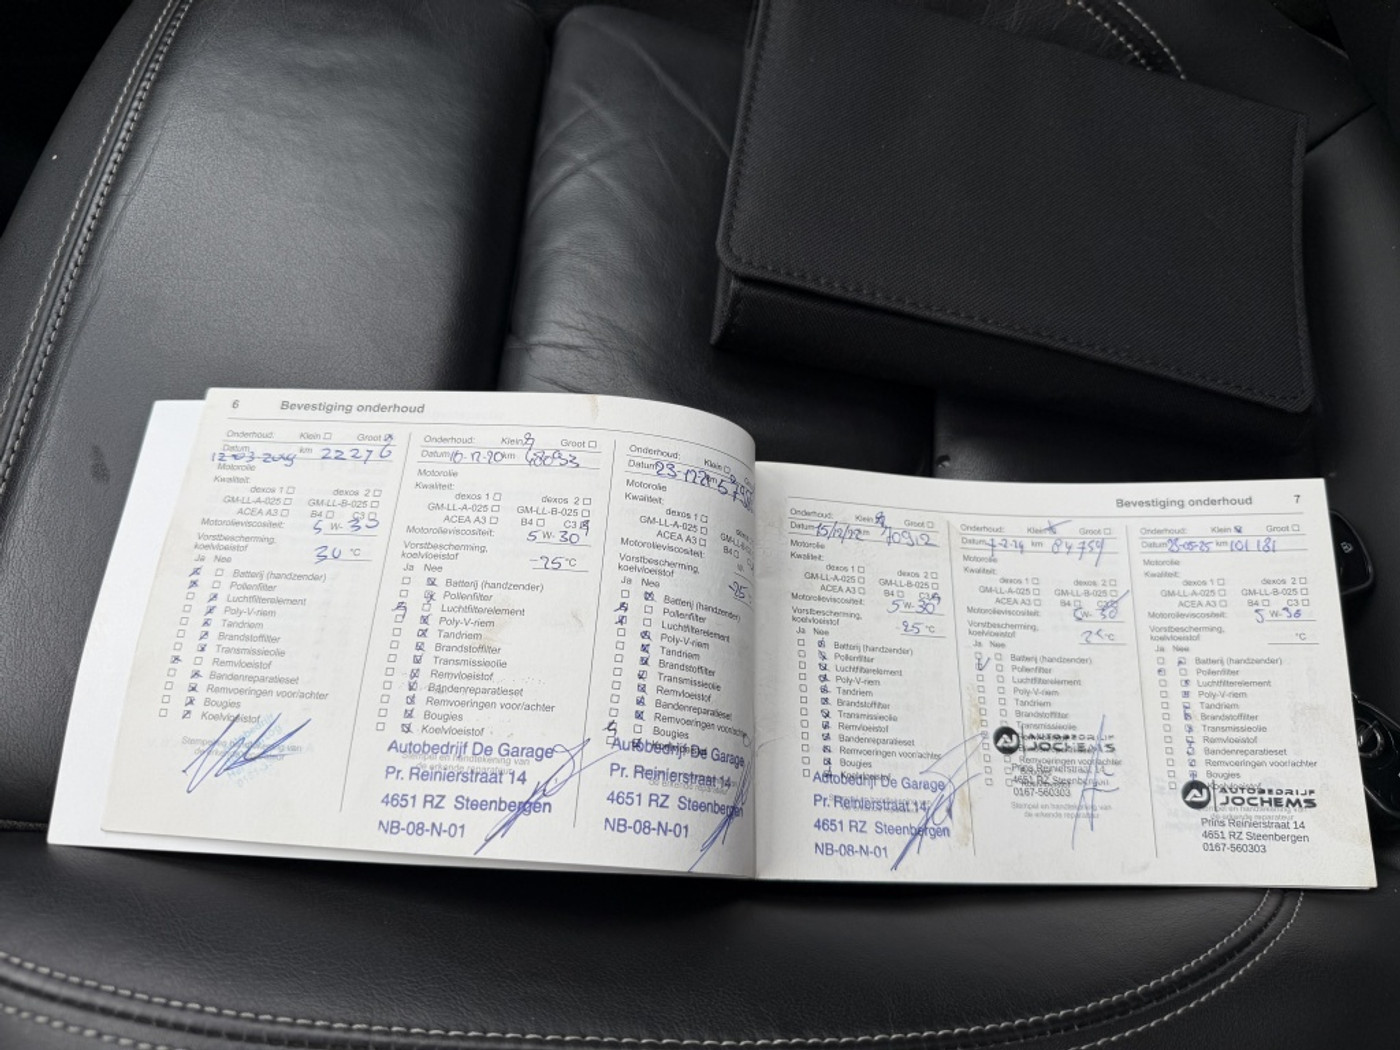 6 Bevestiging onderhoud
Onderhoud: Klein Groot
Datum 12-03-2019 km 22276
Motorolie
Kwaliteit:
dexos 1 dexos 2
GM-LL-A-025 GM-LL-B-025
ACEA A3 B4 C3
Motorolieviscositeit: 5 W- 30
Vorstbescherming,
koelvloeistof 30 °C
Ja Nee
Batterij (handzender)
Pollenfilter
Luchtfilterelement
Poly-V-riem
Tandriem
Brandstoffilter
Transmissieolie
Remvloeistof
Bandenreparatieset
Remvoeringen voor/achter
Bougies
Koelvloeistof
Stempel en handtekening van
de erkende reparateur
Onderhoud: Klein Groot
Datum 10-12-20 km 48093
Motorolie
Kwaliteit:
dexos 1 dexos 2
GM-LL-A-025 GM-LL-B-025
ACEA A3 B4 C3
Motorolieviscositeit: 5 W- 30
Vorstbescherming,
koelvloeistof -25 °C
Ja Nee
Batterij (handzender)
Pollenfilter
Luchtfilterelement
Poly-V-riem
Tandriem
Brandstoffilter
Transmissieolie
Remvloeistof
Bandenreparatieset
Remvoeringen voor/achter
Bougies
Koelvloeistof
Autobedrijf De Garage
Pr. Reinierstraat 14
4651 RZ Steenbergen
NB-08-N-01
Onderhoud: Klein
Datum
Motorolie
Kwaliteit:
dexos 1
GM-LL-A-025
ACEA A3
Motorolieviscositeit:
Vorstbescherming,
koelvloeistof -25
Ja Nee
Batterij (handzender)
Pollenfilter
Luchtfilterelement
Poly-V-riem
Tandriem
Brandstoffilter
Transmissieolie
Remvloeistof
Bandenreparatieset
Remvoeringen voor/achter
Bougies
Autobedrijf De Garage
Pr. Reinierstraat 14
4651 RZ Steenbergen
NB-08-N-01
Bevestiging onderhoud 7
Onderhoud: Klein Groot
Datum 15/12/22 km 70912
Motorolie
Kwaliteit:
dexos 1 dexos 2
GM-LL-A-025 GM-LL-B-025
ACEA A3 B4 C3
Motorolieviscositeit: 5 W- 30
Vorstbescherming,
koelvloeistof 25 °C
Ja Nee
Batterij (handzender)
Pollenfilter
Luchtfilterelement
Poly-V-riem
Tandriem
Brandstoffilter
Transmissieolie
Remvloeistof
Bandenreparatieset
Remvoeringen voor/achter
Bougies
Koelvloeistof
Autobedrijf De Garage
Pr. Reinierstraat 14
4651 RZ Steenbergen
NB-08-N-01
Onderhoud: Klein Groot
Datum 7-2-24 km 84759
Motorolie
Kwaliteit:
dexos 1 dexos 2
GM-LL-A-025 GM-LL-B-025
ACEA A3 B4 C3
Motorolieviscositeit: 5 W- 30
Vorstbescherming,
koelvloeistof °C
Ja Nee
Batterij (handzender)
Pollenfilter
Luchtfilterelement
Poly-V-riem
Tandriem
Brandstoffilter
Transmissieolie
AJ AUTOBEDRIJF
JOCHEMS
Prins Reinierstraat 14
4651 RZ Steenbergen
0167-560303
Stempel en handtekening van
de erkende reparateur
Onderhoud: Klein Groot
Datum 28-05-25 km 101 181
Motorolie
Kwaliteit:
dexos 1 dexos 2
GM-LL-A-025 GM-LL-B-025
ACEA A3 B4 C3
Motorolieviscositeit: 5 W- 30
Vorstbescherming,
koelvloeistof °C
Ja Nee
Batterij (handzender)
Pollenfilter
Luchtfilterelement
Poly-V-riem
Tandriem
Brandstoffilter
Transmissieolie
Remvloeistof
Bandenreparatieset
Remvoeringen voor/achter
Bougies
Koelvloeistof
AJ AUTOBEDRIJF
JOCHEMS
Prins Reinierstraat 14
4651 RZ Steenbergen
0167-560303